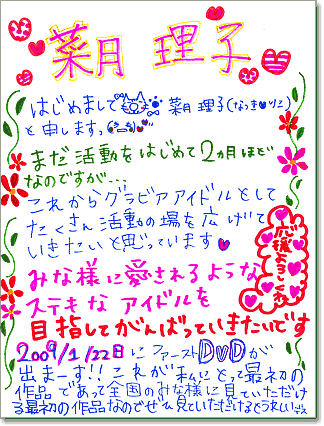 菜月 理子
はじめまして 菜月 理子(なつき♥りこ)
と申します。
まだ活動をはじめて2ヵ月ほど
なのですが…
これからグラビアアイドルとして
たくさん活動の場を広げて
いきたいと思っています♥
応援よろしくネ
みな様に愛されるような
ステキなアイドルを
目指してがんばっていきたいです
2009/1/22日にファーストDVDが
出まーす!!これが私にとって最初の
作品であって全国のみな様に見ていただけ
る最初の作品なのでぜひ見ていただけるとうれしいです